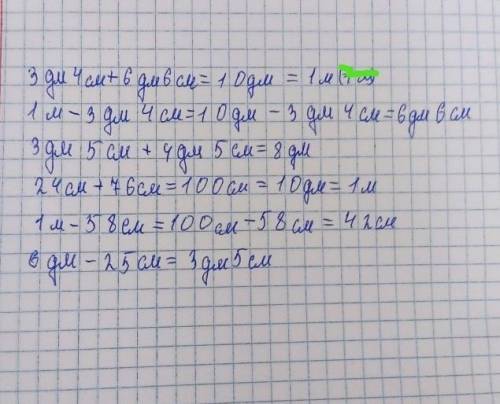 3 дм 4 см + 6 дм 6 см = 10 дм = 1 м
1 м - 3 дм 4 см = 10 дм - 3 дм 4 см = 6 дм 6 см
3 дм 5 см + 4 дм 5 см = 8 дм
24 см + 76 см = 100 см = 10 дм = 1 м
1 м - 58 см = 100 см - 58 см = 42 см
6 дм - 25 см = 3 дм 5 см